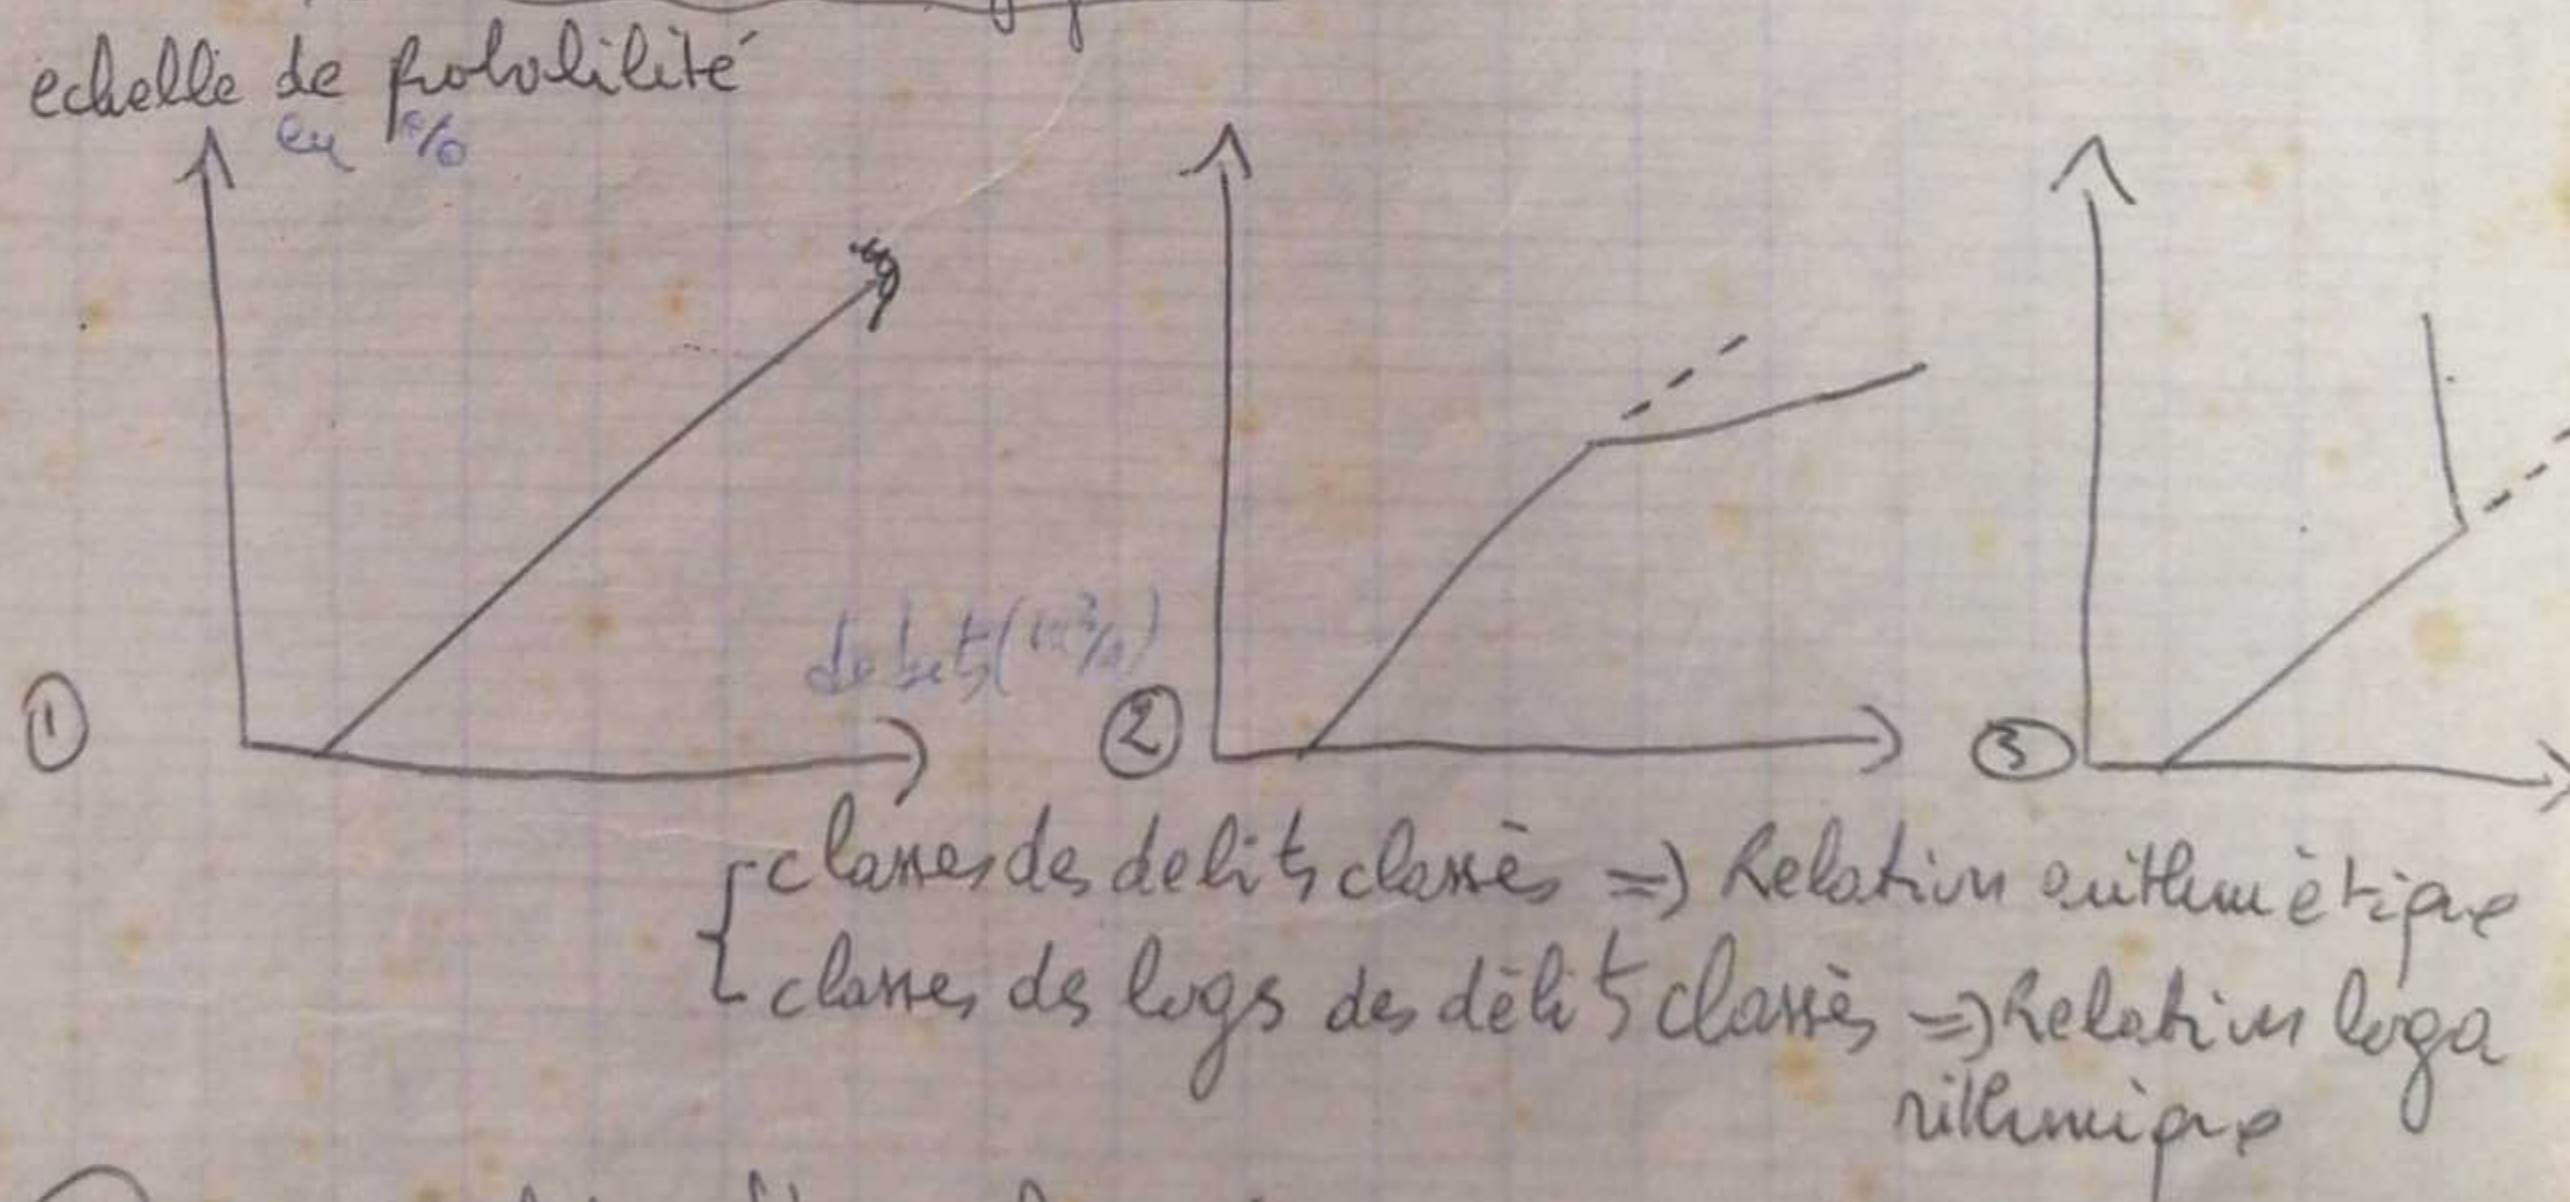 echelle de probabilité
en %
debits (m³/s)
① ② ③
classes des debits classès => Relation arithmètique
classes des logs des dèbits classès => Relation loga
rithmique